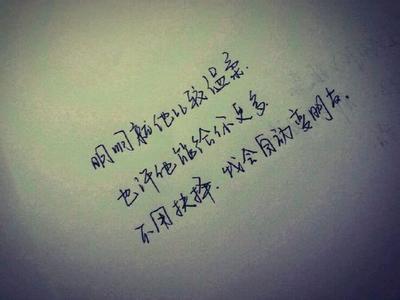 明明就他比较温柔.
也许他能给你更多
不用抉择.我会自动变朋友.